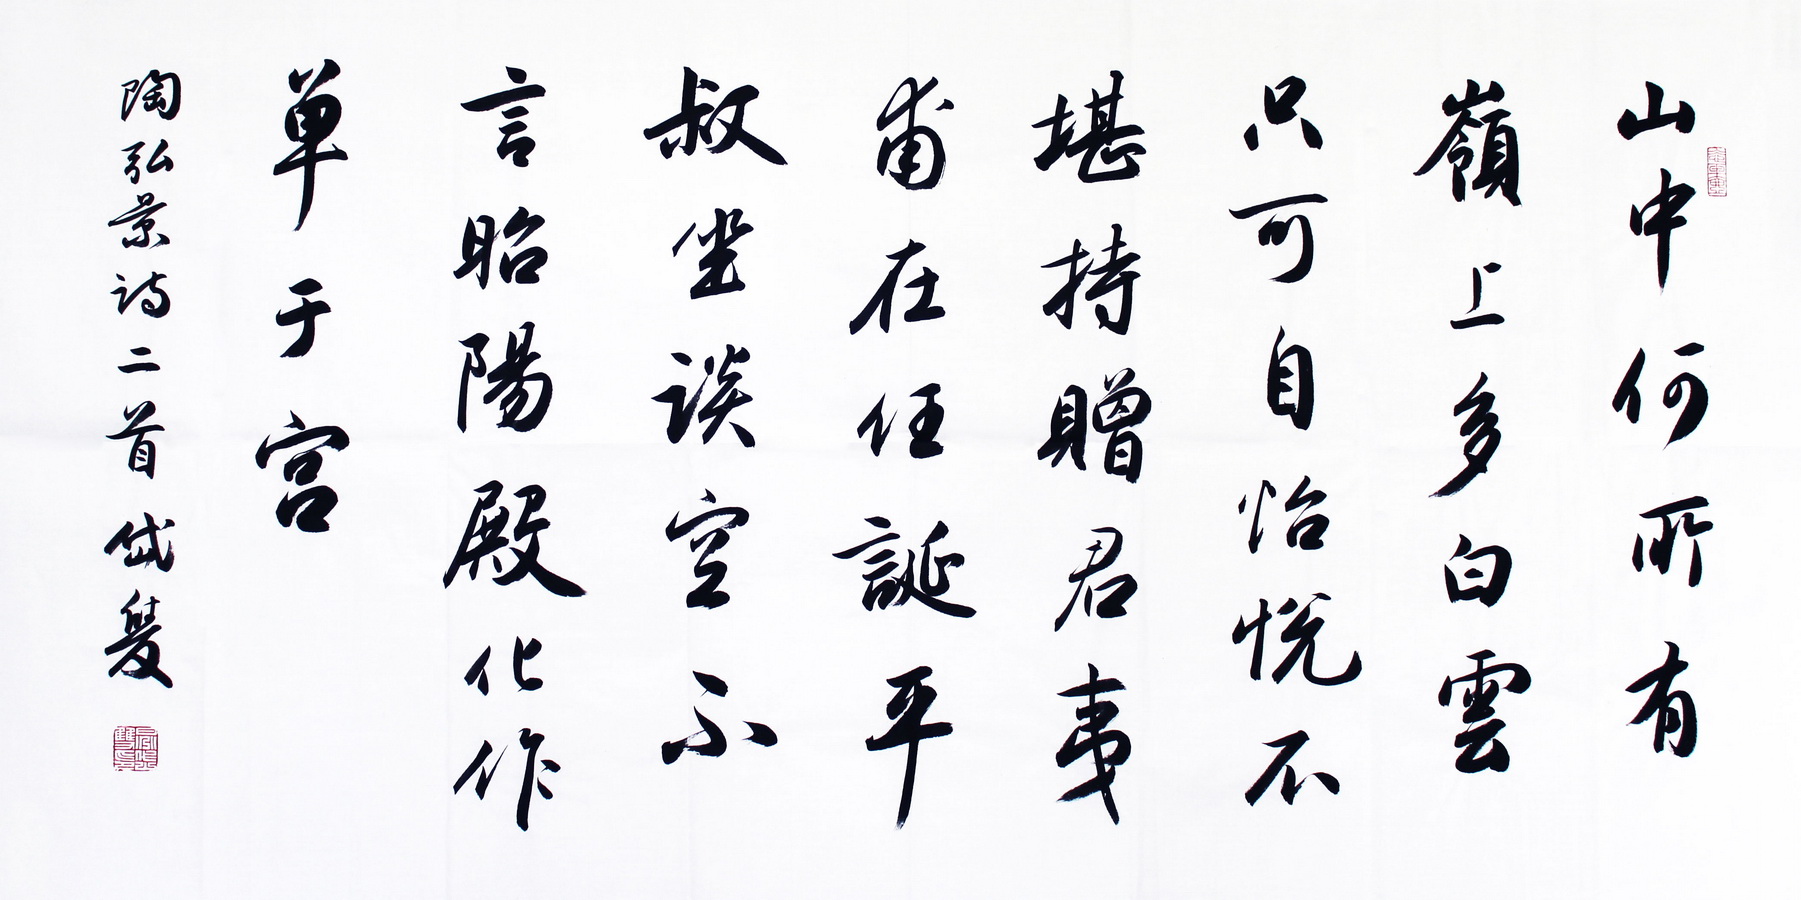 山中何所有
嶺上多白雲
只可自怡悅不
堪持贈君夷
甫在任誕平
叔坐談空不
言昭陽殿化作
单于宫
陶弘景詩二首 岱叟